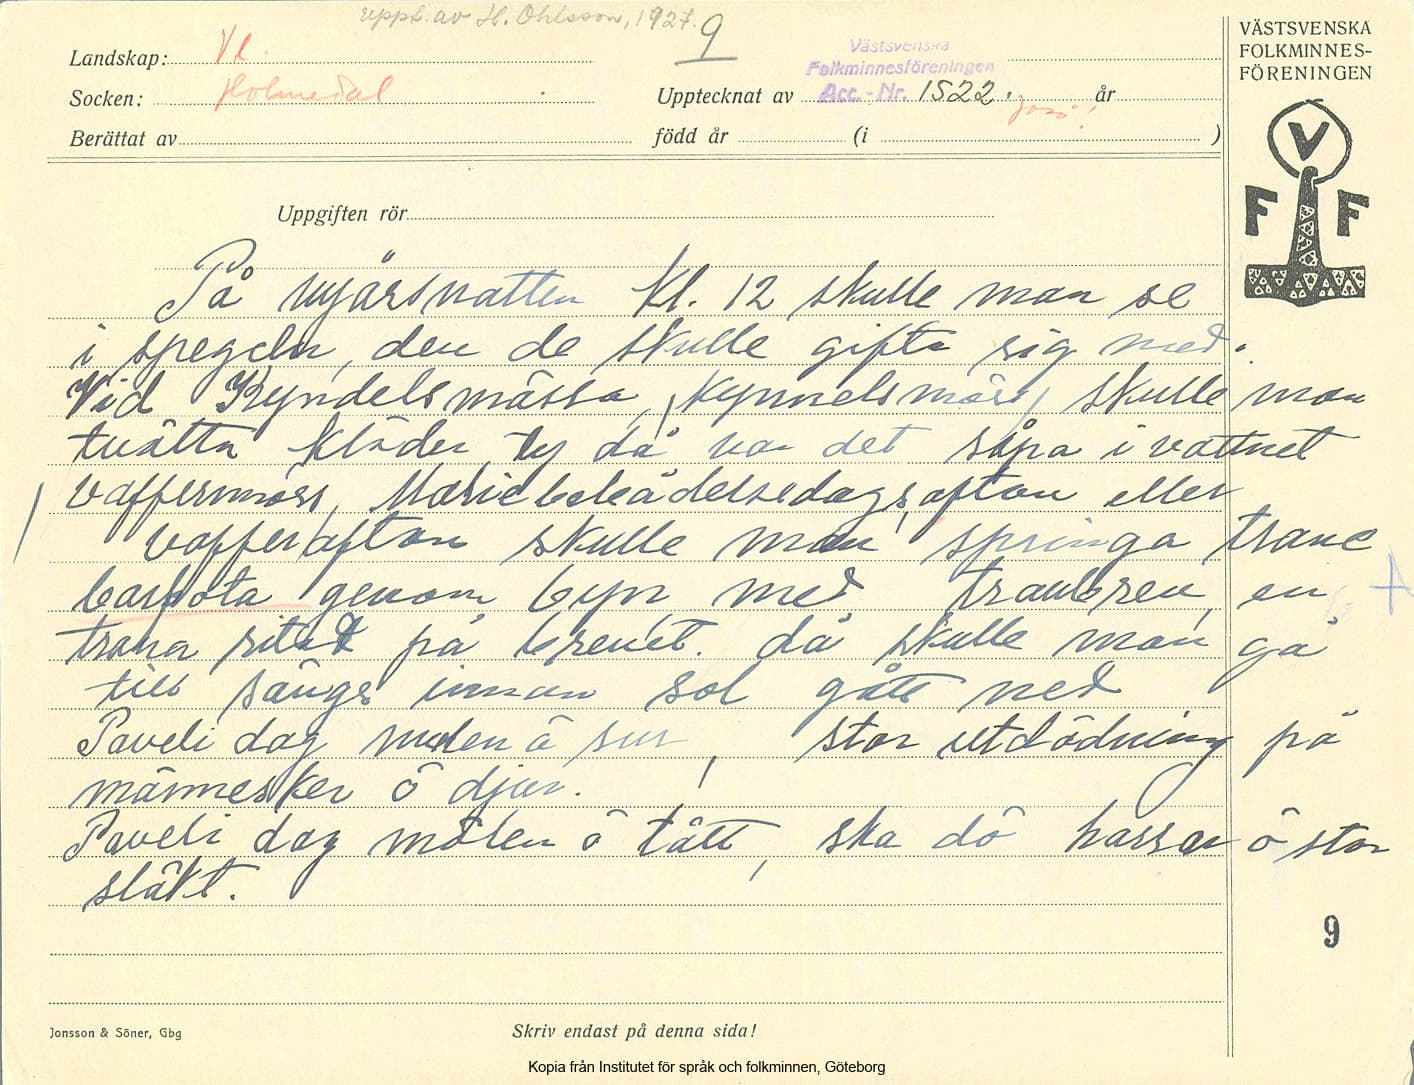 uppt. av H. Ohlsson, 1927. 9
VÄSTSVENSKA
FOLKMINNES-
FÖRENINGEN
Landskap: Vl.
Västsvenska
Folkminnesföreningen
Socken: Holmedal
Upptecknat av Acc.-Nr. 1522. år
Berättat av
född år (i )
V
F F
Uppgiften rör
På nyårsnatten kl. 12 skulle man se
i spegeln, den de skulle gifta sig med.
Vid Kyndelsmässa, kynnelsmäss, skulle man
tvätta kläder ty då var det såpa i vattnet
vaffermäss, Mariebebådelsedagsafton eller
vafferafton skulle man springa trane
barbota genom byn med tranbren, en
trana ritad på brenet. då skulle man gå
till sängs innan sol gått ned
Paveli dag mulen å sur, stor utdödning på
männesker ö djur.
Paveli dag mölen ö tått, ska dö harrar ö stor
släkt.
9
Jonsson & Söner, Gbg
Skriv endast på denna sida!
Kopia från Institutet för språk och folkminnen, Göteborg